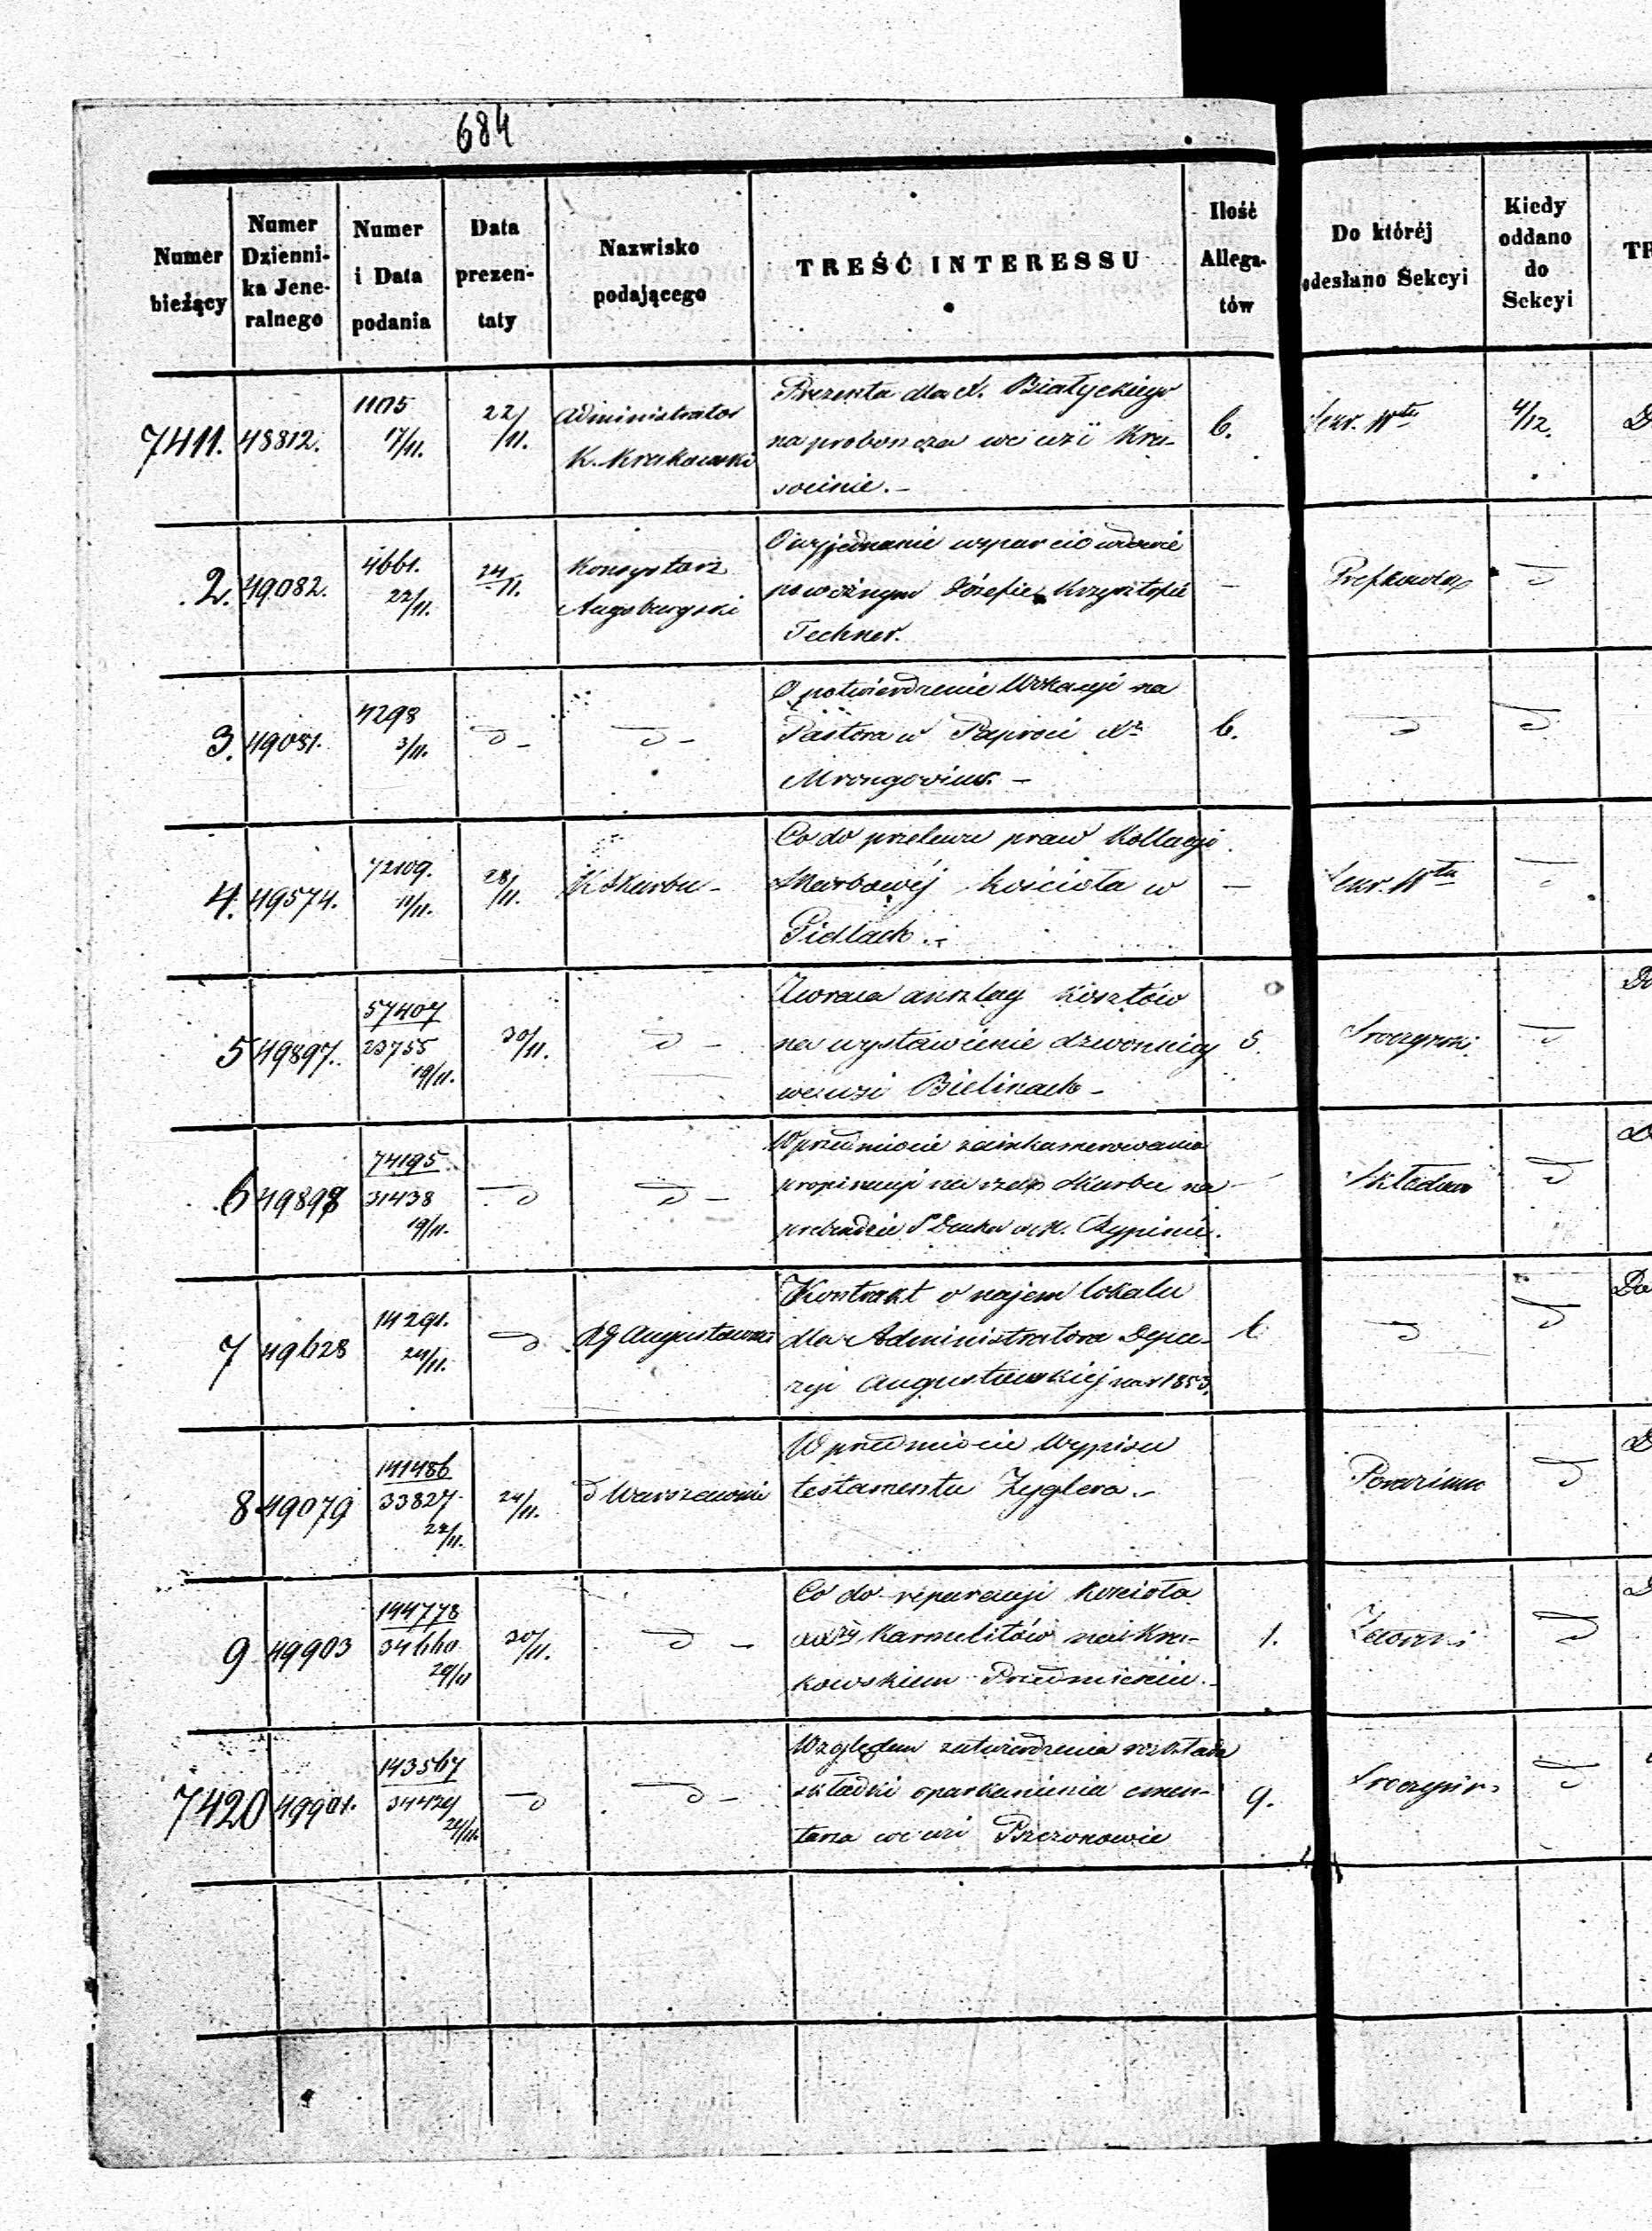 684
Numer bieżący
Numer Dzienni- ka Jene- ralnego
Numer i Data podania
Data prezen- taty
Nazwisko podającego
TREŚĆ INTERESSU
Ilość Allega- tów
Do któréj odesłano Sekcyi
Kiedy oddano do Sekcyi
7411. 48812. 1105 17/11. 22/11. Administrator K. Krakowski
Prezenta dla X. Białyckiego
na proboszcza we wsi Kra-
socinie.–
6. 4/12.
2. 49082. 4661. 22/11. 24/11. Konsystorz Augsburgski
O wyjednanie wsparcia wdowie
po woźnym Józefie Krzysztofie
Techner.
–
3. 49081. 4298 3/11.
O potwierdzenie Wokacyi na
Pastora w Paproci Xa
Mrongovius.–
6.
4. 49574. 72109. 11/11. 28/11. K Skarbu–
Co do przelewu praw Kollacyi
Skarbowéj Kościoła w
Pidlach.–
–
5 49897. 57407 23755 19/11. 30/11.
Zwraca anszlag kosztów
na wystawienie dzwonnicy
we wsi Bielinach–
5.
6 49898 74195 31438 19/11.
W przedmiocie zainkamerowania
propinacyi na rzecz Skarbu na
prebendzie S Ducha w m. Rypinie.
7 49628 14291. 24/11. RG Augustowski
Kontrakt o najem lokalu
dla Administratora Dyece-
zyi Augustowskiéj na r 1853.
8 49079 141486 33827 22/11. 24/11. Warszawski
W przedmiocie Wypisu
testamentu Zyglera.–
9 49903 144778 34660 29/11 30/11.
Co do reparacyi kościoła
XXży Karmelitów na Kra-
kowskiem Przedmieściu.–
1.
7420 49901. 143567 34429 24/11.
Względem zatwierdzenia rozkładu
składki oparkanienia cmen-
tarza we wsi
9.